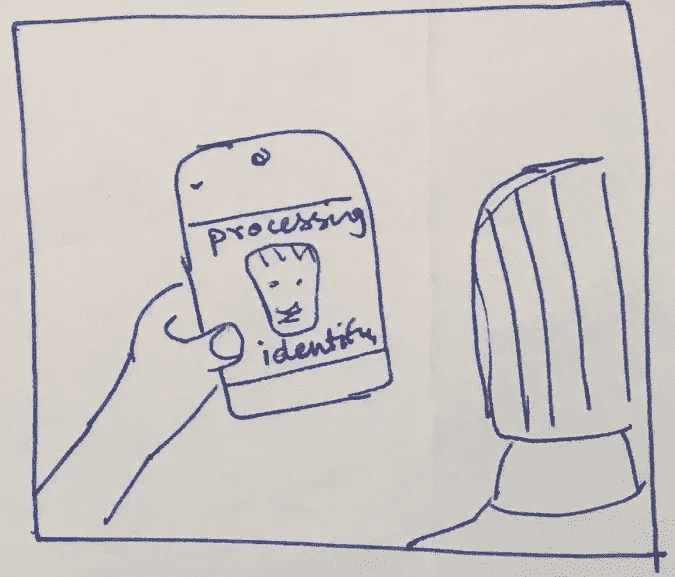 processing
identify